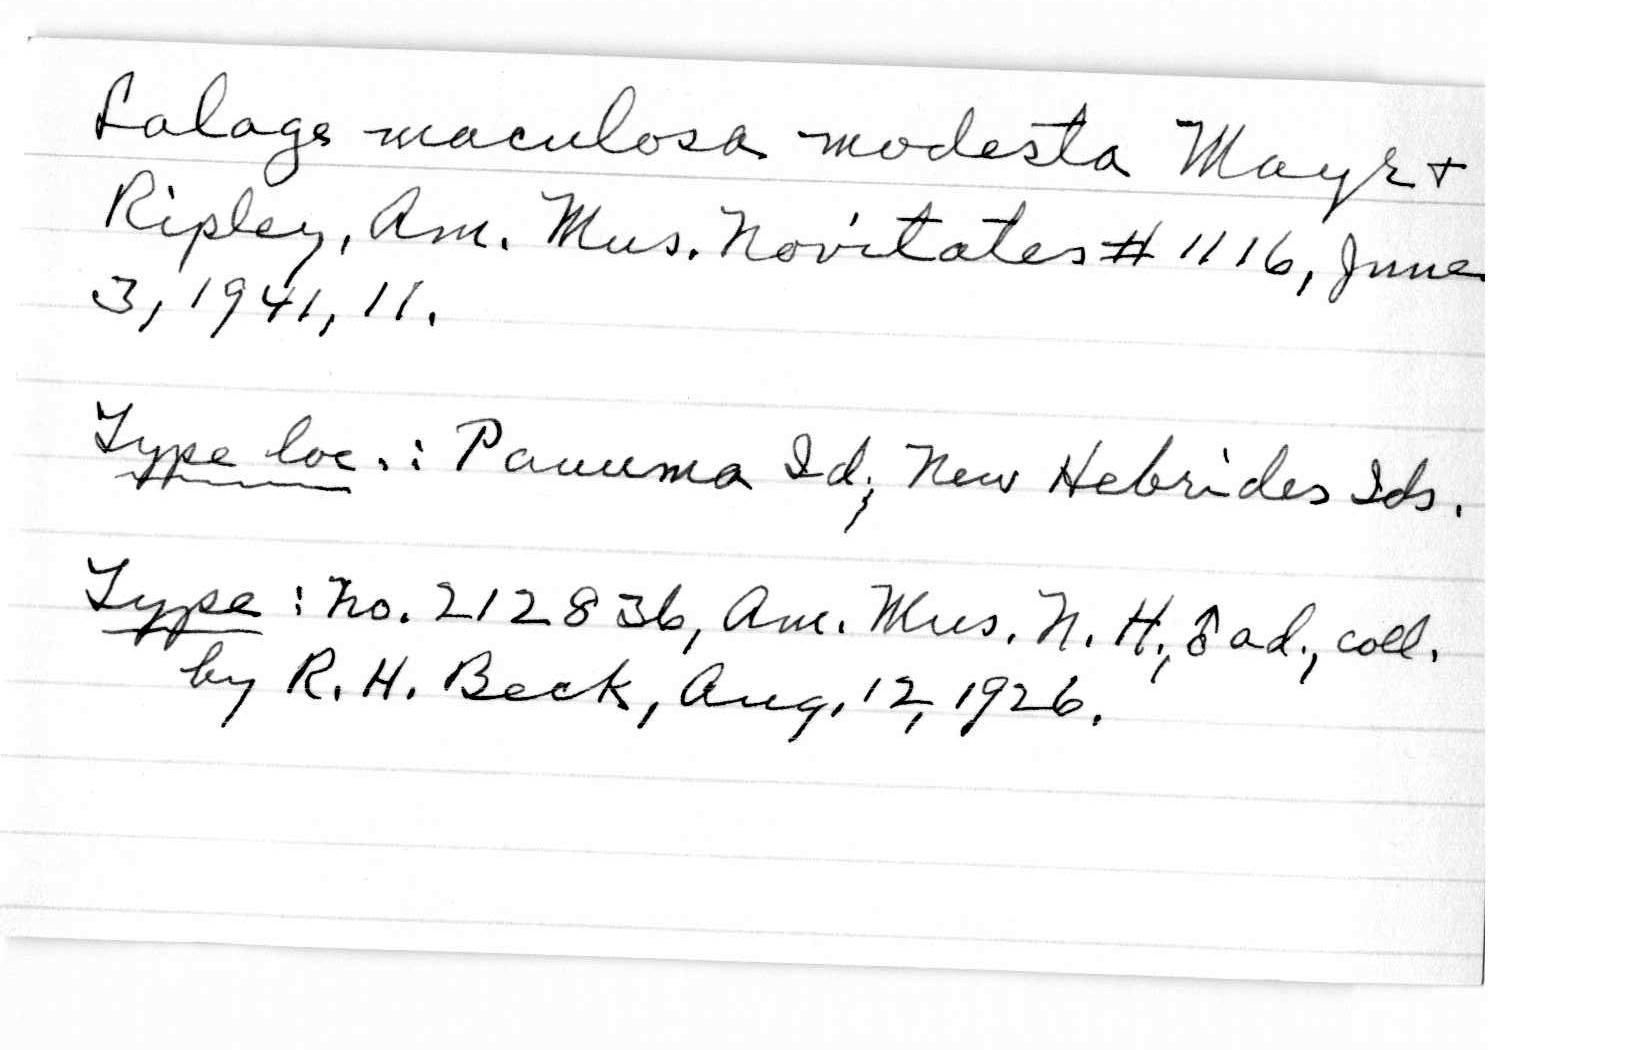 Lalage maculosa modesta Mayr +
Ripley, Am. Mus. Novitates # 1116, June
3, 1941, 11.
Type loc.: Pauuma Id, New Hebrides Ids.
Type: No. 212836, Am. Mus. N. H., ♂ ad., coll.
by R. H. Beck, Aug. 12, 1926.